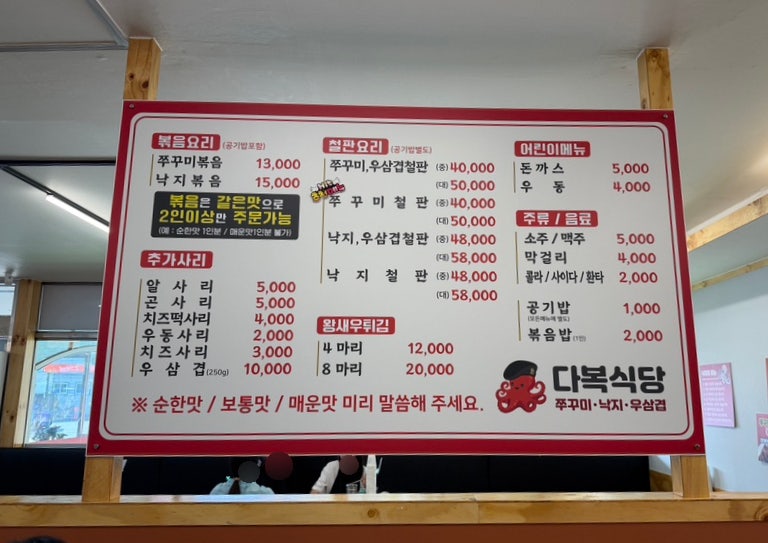 볶음요리 (공기밥포함)
쭈꾸미볶음 13,000
낙지볶음 15,000
볶음은 같은맛으로
2인이상만 주문가능
(예 : 순한맛 1인분 / 매운맛1인분 불가)
추가사리
알사리 5,000
곤사리 5,000
치즈떡사리 4,000
우동사리 2,000
치즈사리 3,000
우삼겹(250g) 10,000
철판요리 (공기밥별도)
쭈꾸미,우삼겹철판 (중)40,000
(대)50,000
쭈꾸미철판 (중)40,000
(대)50,000
낙지,우삼겹철판 (중)48,000
(대)58,000
낙지철판 (중)48,000
(대)58,000
왕새우튀김
4마리 12,000
8마리 20,000
어린이메뉴
돈까스 5,000
우동 4,000
주류 / 음료
소주 / 맥주 5,000
막걸리 4,000
콜라 / 사이다 / 환타 2,000
공기밥 1,000
(모든메뉴에 별도)
볶음밥(1인) 2,000
※ 순한맛 / 보통맛 / 매운맛 미리 말씀해 주세요.
다복식당
쭈꾸미·낙지·우삼겹